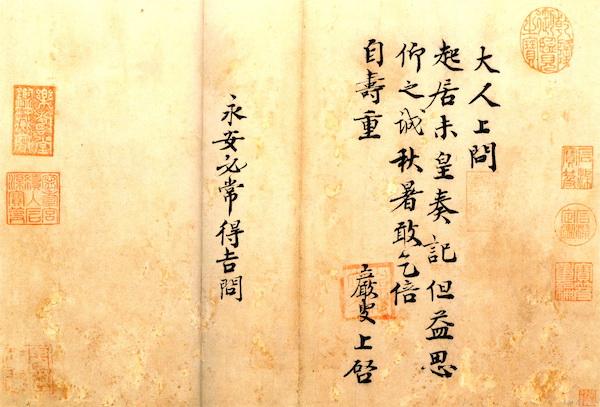 大人上問
起居未皇奏記但益思
仰之誠秋暑敢乞倍
自壽重
巖叟上啓
永安必常得吉問
乾隆御覽之寶